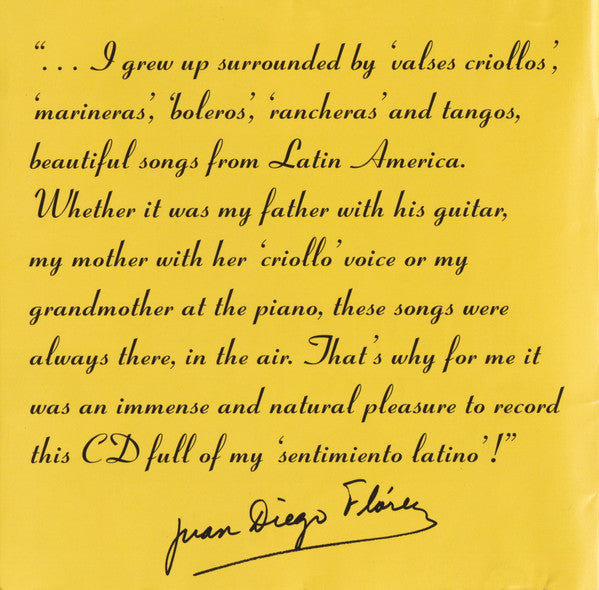 “... I grew up surrounded by ‘valses criollos’,
‘marineras’, ‘boleros’, ‘rancheras’ and tangos,
beautiful songs from Latin America.
Whether it was my father with his guitar,
my mother with her ‘criollo’ voice or my
grandmother at the piano, these songs were
always there, in the air. That’s why for me it
was an immense and natural pleasure to record
this CD full of my ‘sentimiento latino’!”
Juan Diego Flórez